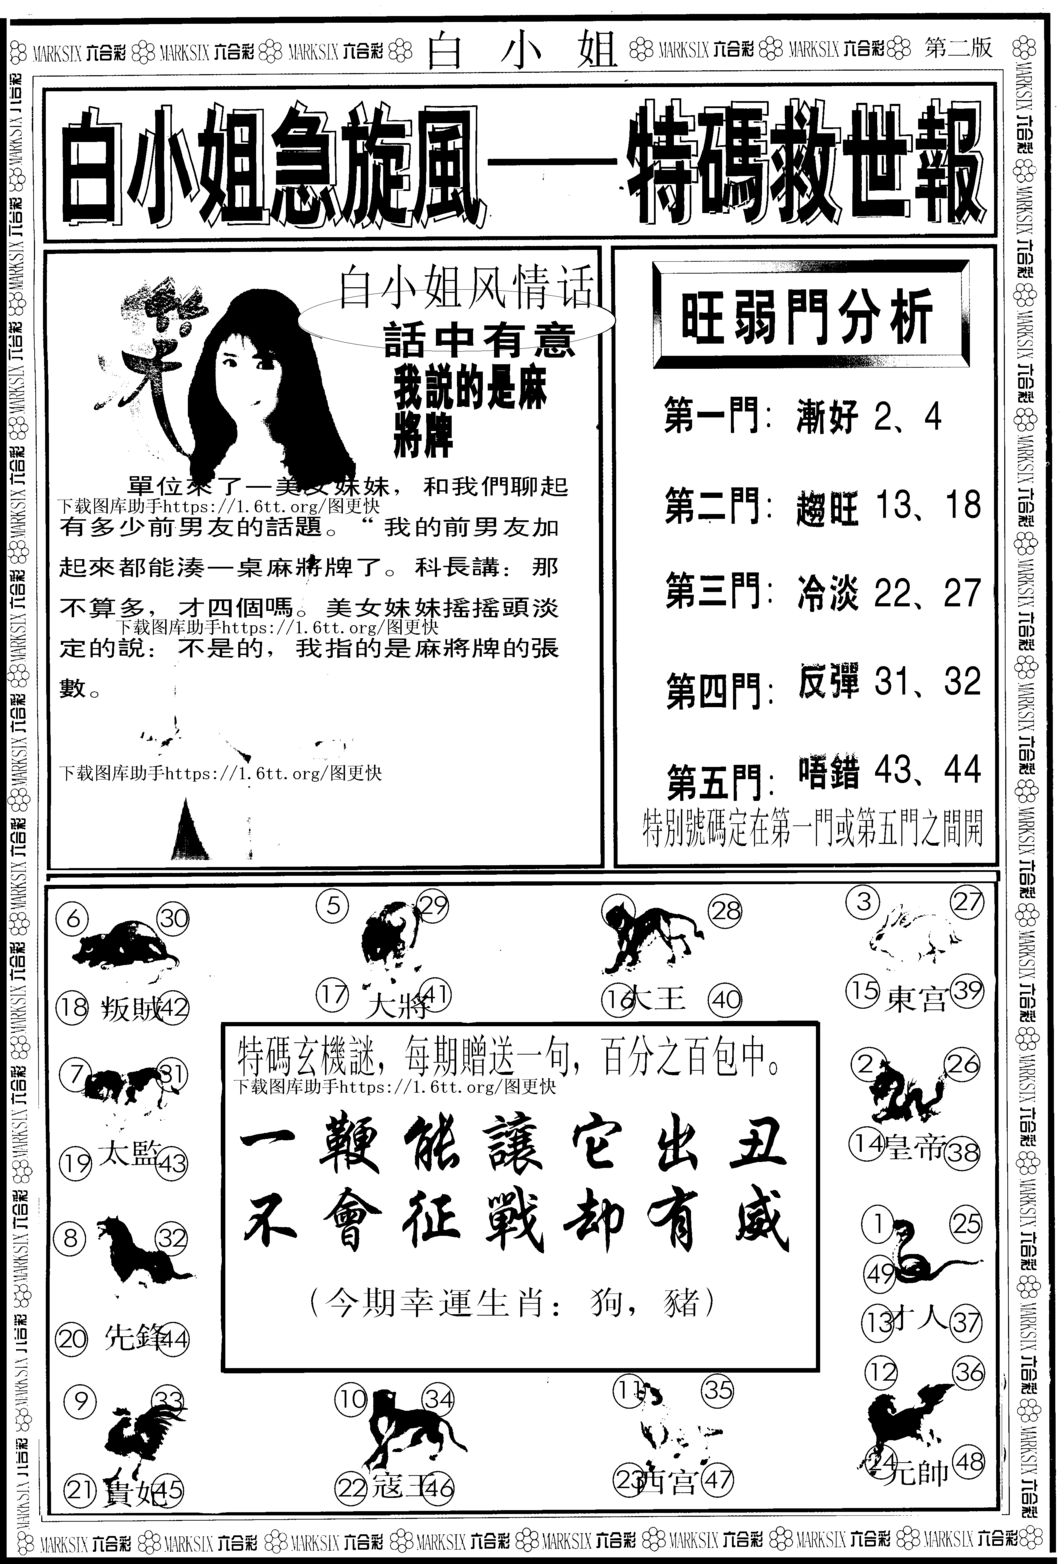 MARKSIX 六合彩 MARKSIX 六合彩 MARKSIX 六合彩 白小姐 MARKSIX 六合彩 MARKSIX 六合彩 第二版
白小姐急旋風——特碼救世報
笑
白小姐风情话
話中有意
我説的是麻
將牌
單位來了一美女妹妹，和我們聊起
下载图库助手https://1.6tt.org/图更快
有多少前男友的話題。“我的前男友加
起來都能湊一桌麻將牌了。科長講：那
不算多，才四個嗎。美女妹妹搖搖頭淡
下载图库助手https://1.6tt.org/图更快
定的說：不是的，我指的是麻將牌的張
數。
下载图库助手https://1.6tt.org/图更快
旺弱門分析
第一門：漸好 2、4
第二門：趨旺 13、18
第三門：冷淡 22、27
第四門：反彈 31、32
第五門：唔錯 43、44
特別號碼定在第一門或第五門之間開
6 30
18 叛賊 42
5 29
17 大將 41
28
16 大王 40
3 27
15 東宫 39
7 31
19 太監 43
8 32
20 先鋒 44
特碼玄機謎，每期贈送一句，百分之百包中。
下载图库助手https://1.6tt.org/图更快
一鞭能讓它出丑
不會征戰却有威
（今期幸運生肖：狗，豬）
2 26
14 皇帝 38
1 25
49
13 才人 37
9 33
21 貴妃 45
10 34
22 寇王 46
11 35
23 西宫 47
12 36
24 元帥 48
MARKSIX 六合彩 MARKSIX 六合彩 MARKSIX 六合彩 MARKSIX 六合彩 MARKSIX 六合彩 MARKSIX 六合彩 MARKSIX 六合彩 MARKSIX 六合彩